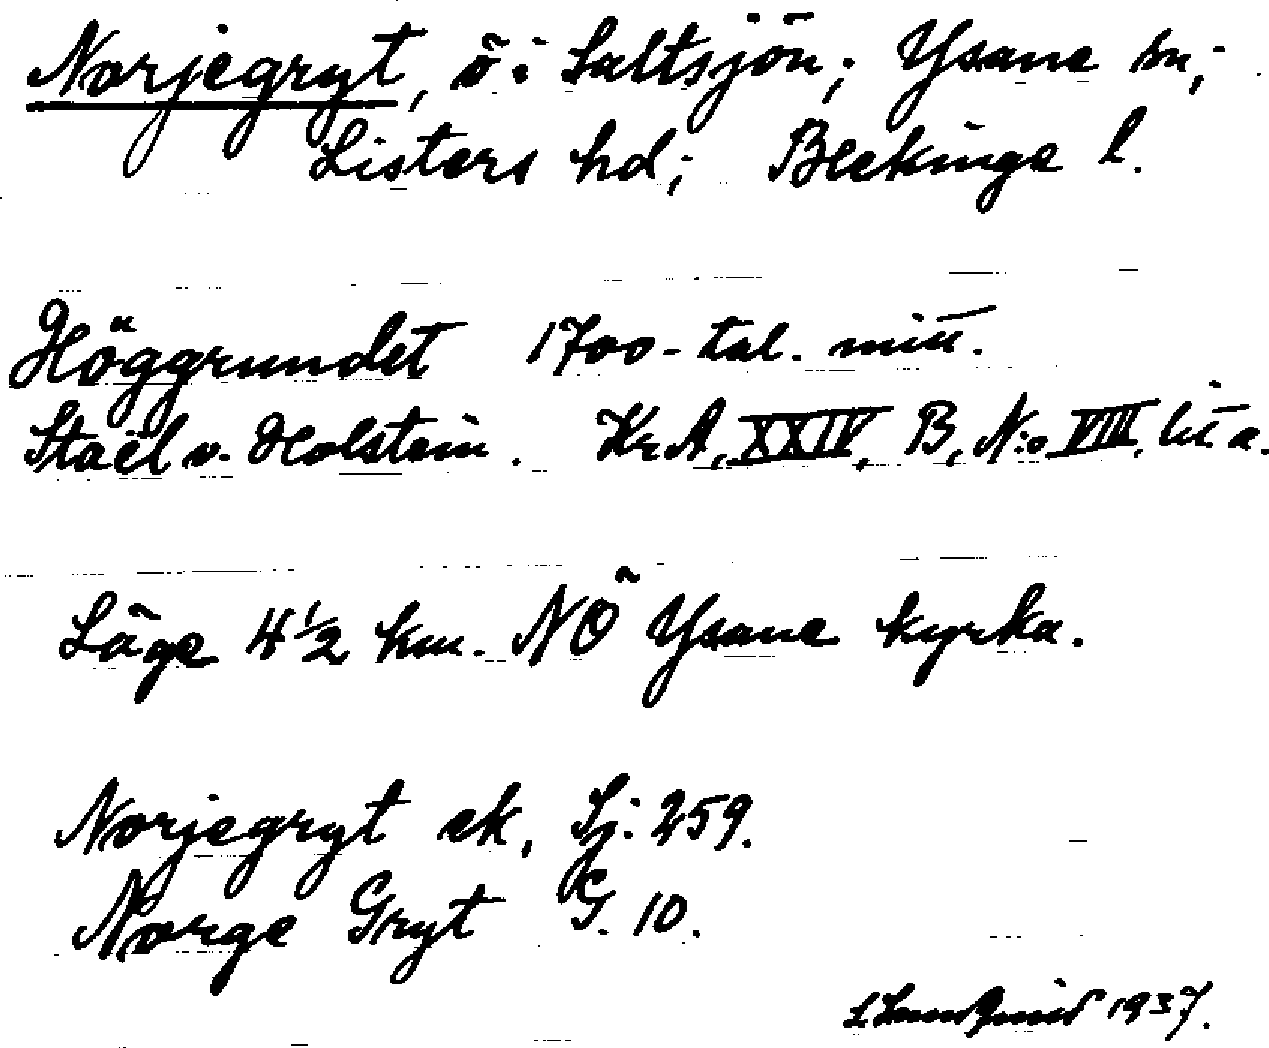 Norjegryt, ö i Saltsjön; Ysane sn;
Listers hd; Blekinge l.
Höggrundet 1700-tal. mitt.
Staël v. Holstein. Kr.A, XXIV, B, N:o VIII, litt a.
Läge 4 1/2 km. NÖ Ysane kyrka.
Norjegryt ek, Sj: 259.
Norge Gryt G. 10.
L. Lundquist 1937.